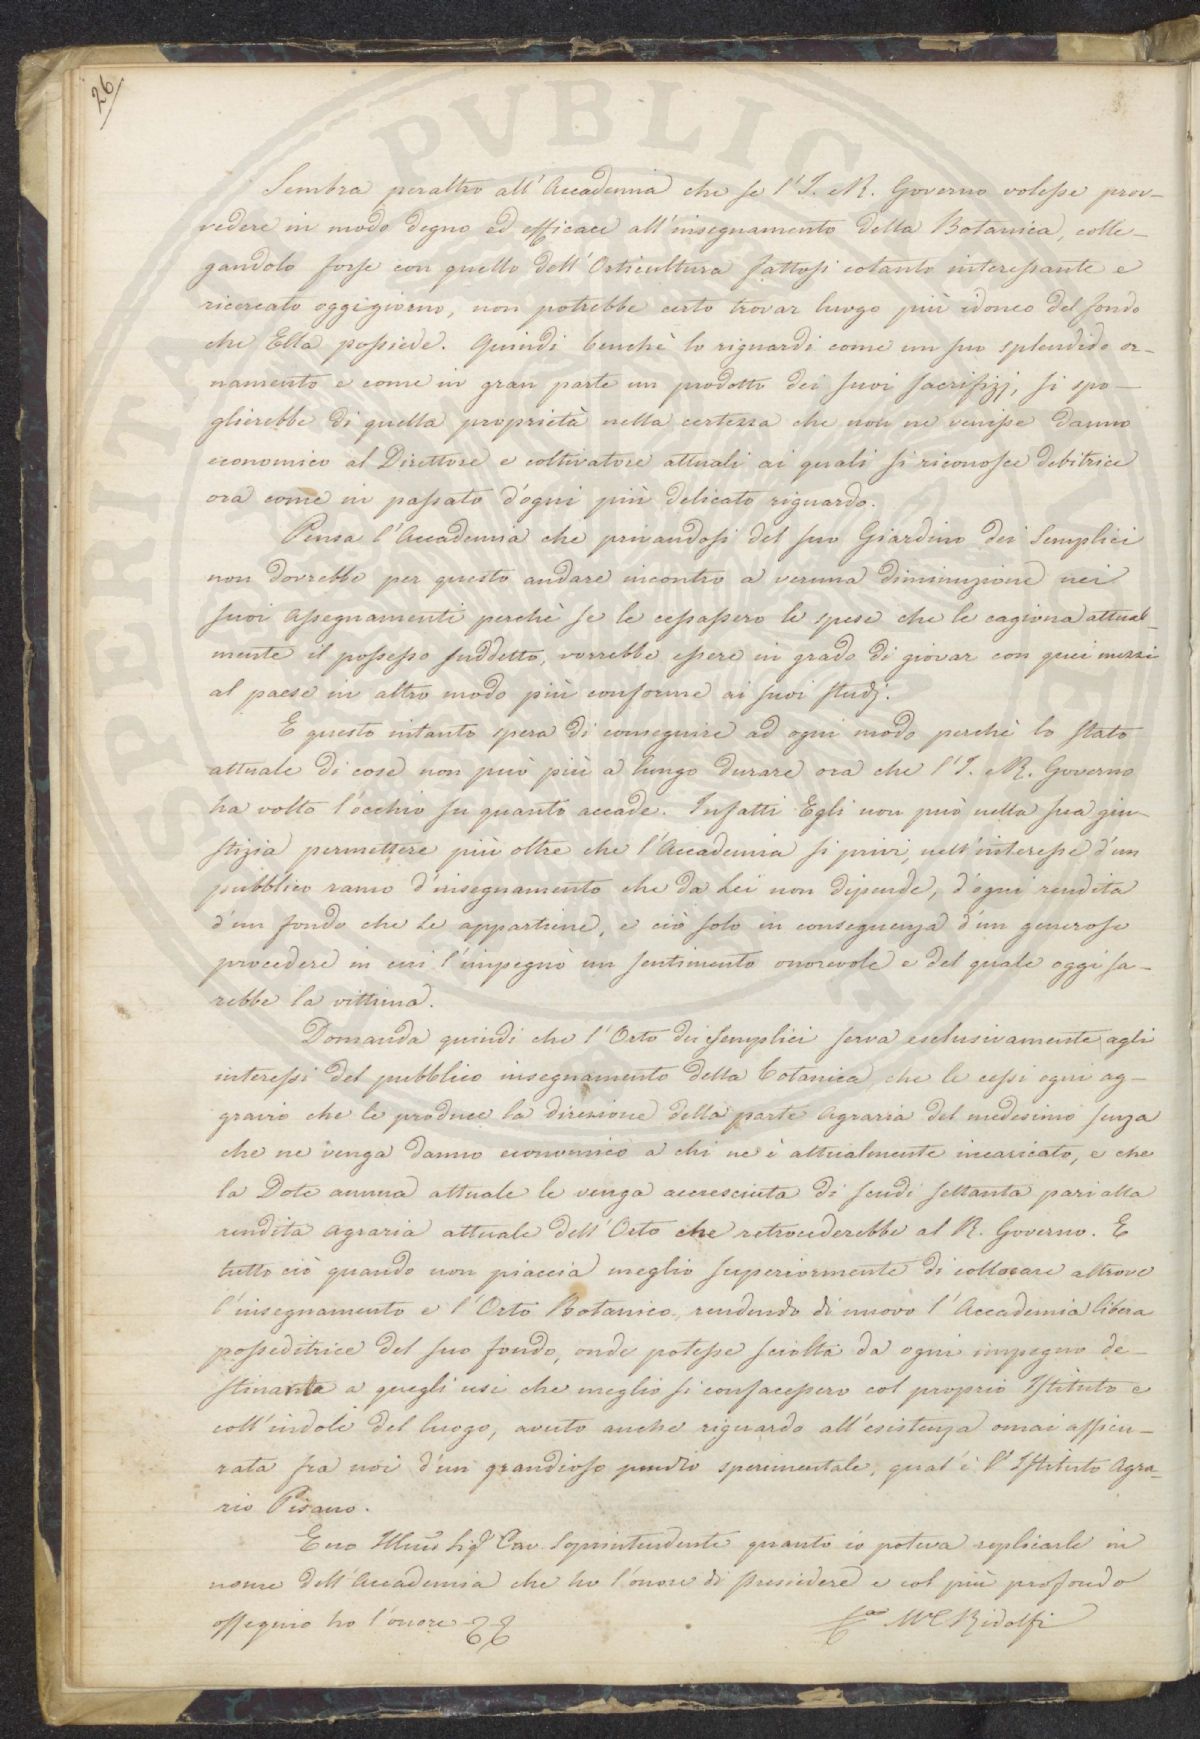 26
Sembra peraltro all'Accademia che se l'I. e R. Governo volesse prov-
vedere in modo degno ed efficace all'insegnamento della Botanica, colle-
gandolo forse con quello dell'Orticultura fattosi cotanto interessante e
ricercato oggigiorno, non potrebbe certo trovar luogo più idoneo del fondo
che Ella possiede. Quindi benchè lo riguardi come un suo splendido or-
namento e come in gran parte un prodotto dei suoi sacrifizj, si spo-
glierebbe di quella proprietà nella certezza che non ne venisse danno
economico al Direttore e coltivatore attuali ai quali si riconosce debitrice
ora come in passato d'ogni più delicato riguardo.
Pensa l'Accademia che privandosi del suo Giardino dei Semplici
non dovrebbe per questo andare incontro a veruna diminuzione nei
suoi assegnamenti perchè se le cessassero le spese che le cagiona attual-
mente il possesso suddetto, vorrebbe essere in grado di giovar con quei mezzi
al paese in altro modo più conforme ai suoi studj.
E questo intanto spera di conseguire ad ogni modo perchè lo stato
attuale di cose non può più a lungo durare ora che l'I. e R. Governo
ha volto l'occhio su quanto accade. Infatti Egli non può nella sua giu-
stizia permettere più oltre che l'Accademia si privi, nell'interesse d'un
pubblico ramo d'insegnamento che da Lei non dipende, d'ogni rendita
d'un fondo che Le appartiene, e ciò solo in conseguenza d'un generoso
procedere in cui l'impegnò un sentimento onorevole e del quale oggi sa-
rebbe la vittima.
Domanda quindi che l'Orto dei Semplici serva esclusivamente agli
interessi del pubblico insegnamento della botanica, che le cessi ogni ag-
gravio che le produce la direzione della parte Agraria del medesimo senza
che ne venga danno economico a chi ne è attualmente incaricato, e che
la Dote annua attuale le venga accresciuta di scudi settanta pari alla
rendita agraria attuale dell'Orto che retrocederebbe al R. Governo. E
tutto ciò quando non piaccia meglio superiormente di collocare altrove
l'insegnamento e l'Orto Botanico, rendendo di nuovo l'Accademia libera
posseditrice del suo fondo, onde potesse sciolta da ogni impegno de-
stinarla a quegli usi che meglio si confacessero col proprio Istituto e
coll'indole del luogo, avuto anche riguardo all'esistenza omai assicu-
rata fra noi d'un grandioso podere sperimentale, qual'è l'Istituto Agra-
rio Pisano.
Ecco Illmo Sigr Cav. Soprintendente quanto io poteva replicarle in
nome dell'Accademia che ho l'onore di presiedere e col più profondo
ossequio ho l'onore
Mse C. Ridolfi